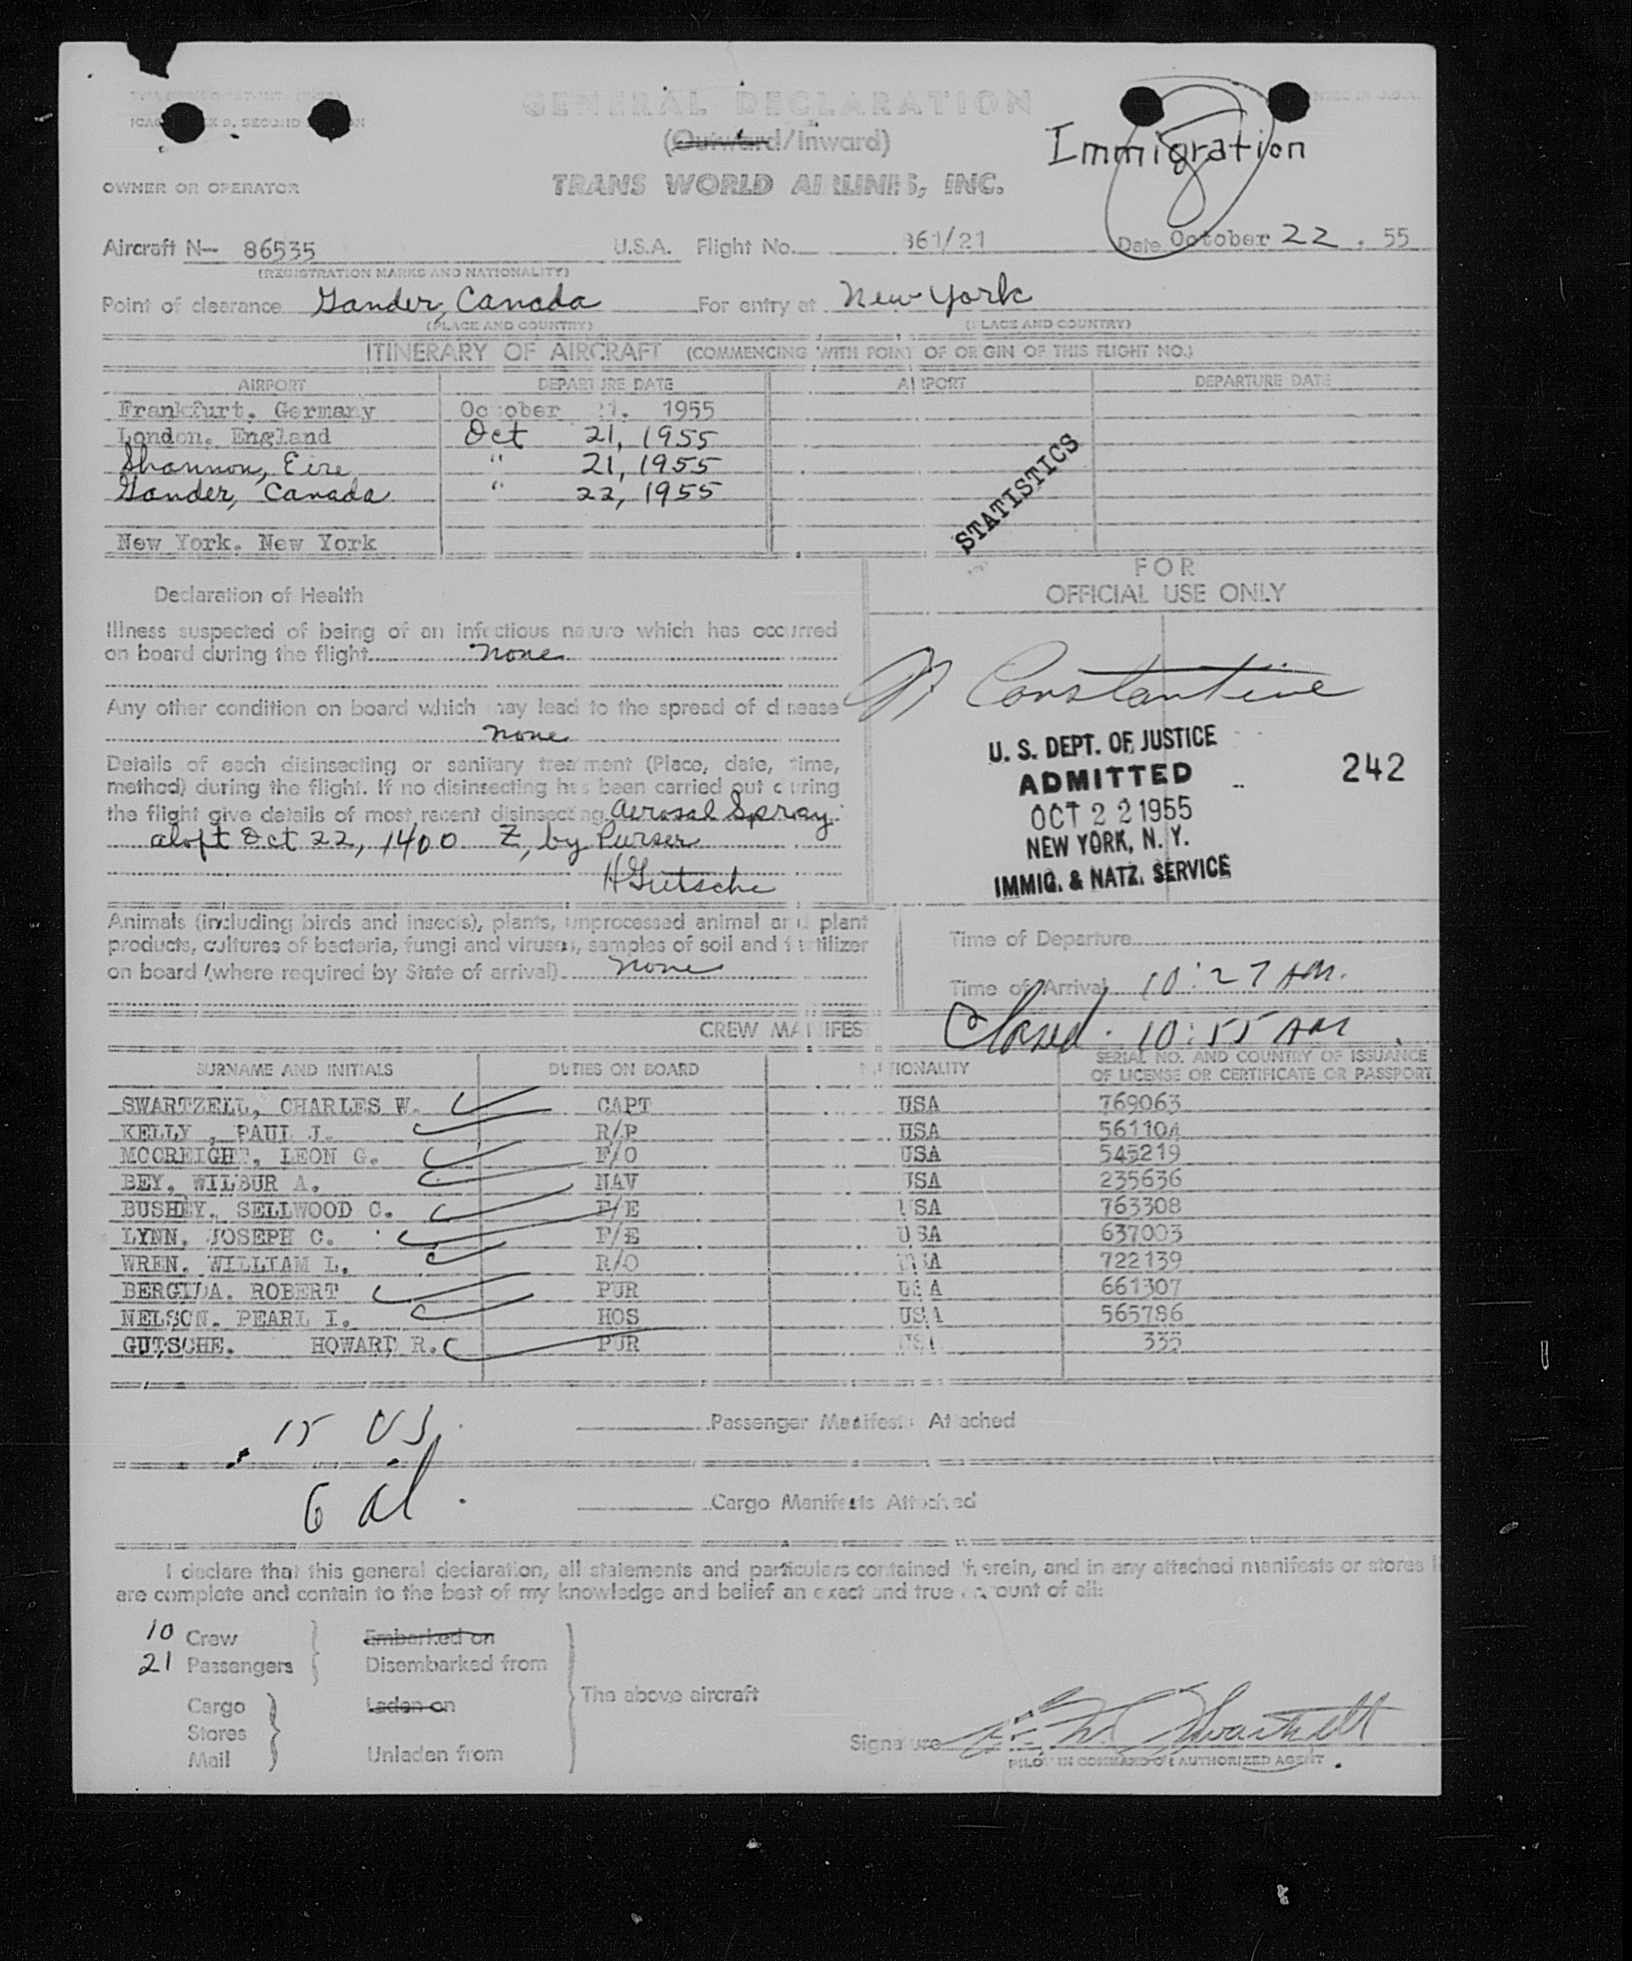 GENERAL DECLARATION
(Outward/Inward)
Immigration
OWNER OR OPERATOR
TRANS WORLD AIRLINES, INC.
Aircraft N— 86535 U.S.A. Flight No. 861/21 Date October 22, 55
(REGISTRATION MARKS AND NATIONALITY)
Point of clearance Gander, Canada For entry at New York
(PLACE AND COUNTRY) (PLACE AND COUNTRY)
ITINERARY OF AIRCRAFT (COMMENCING WITH POINT OF ORIGIN OF THIS FLIGHT NO.)
AIRPORT DEPARTURE DATE AIRPORT DEPARTURE DATE
Frankfurt, Germany October 21, 1955
London, England Oct 21, 1955
Shannon, Eire " 21, 1955
Gander, Canada " 22, 1955
New York, New York
STATISTICS
Declaration of Health
Illness suspected of being of an infectious nature which has occurred
on board during the flight none
Any other condition on board which may lead to the spread of disease
none
Details of each disinsecting or sanitary treatment (Place, date, time,
method) during the flight. If no disinsecting has been carried out during
the flight give details of most recent disinsecting Aerosal Spray
aloft Oct 22, 1400 Z, by Purser
H Gutsche
FOR
OFFICIAL USE ONLY
Constantine
U. S. DEPT. OF JUSTICE
ADMITTED
OCT 22 1955
NEW YORK, N. Y.
IMMIG. & NATZ. SERVICE
242
Animals (including birds and insects), plants, unprocessed animal and plant
products, cultures of bacteria, fungi and viruses, samples of soil and fertilizer
on board (where required by State of arrival) none
Time of Departure
Time of Arrival 10:27 AM.
Closed. 10:55 AM
CREW MANIFEST
SURNAME AND INITIALS DUTIES ON BOARD NATIONALITY SERIAL NO. AND COUNTRY OF ISSUANCE
OF LICENSE OR CERTIFICATE OR PASSPORT
SWARTZELL, CHARLES W. CAPT USA 769063
KELLY , PAUL J. R/P USA 561104
MCCREIGHT, LEON G. F/O USA 545219
BEY, WILBUR A. NAV USA 235636
BUSHEY, SELLWOOD C. F/E USA 763308
LYNN, JOSEPH C. F/E USA 637003
WREN, WILLIAM L. R/O USA 722139
BERGIDA, ROBERT PUR USA 661307
NELSON, PEARL I. HOS USA 565786
GUTSCHE, HOWARD R. PUR USA 335
15 US.
Passenger Manifests Attached
6 al.
Cargo Manifests Attached
I declare that this general declaration, all statements and particulars contained herein, and in any attached manifests or stores
are complete and contain to the best of my knowledge and belief an exact and true account of all:
10 Crew
21 Passengers
Embarked on
Disembarked from
Cargo
Stores
Mail
Laden on
Unladen from
The above aircraft
Signature C. W. Swartzell
PILOT IN COMMAND OR AUTHORIZED AGENT